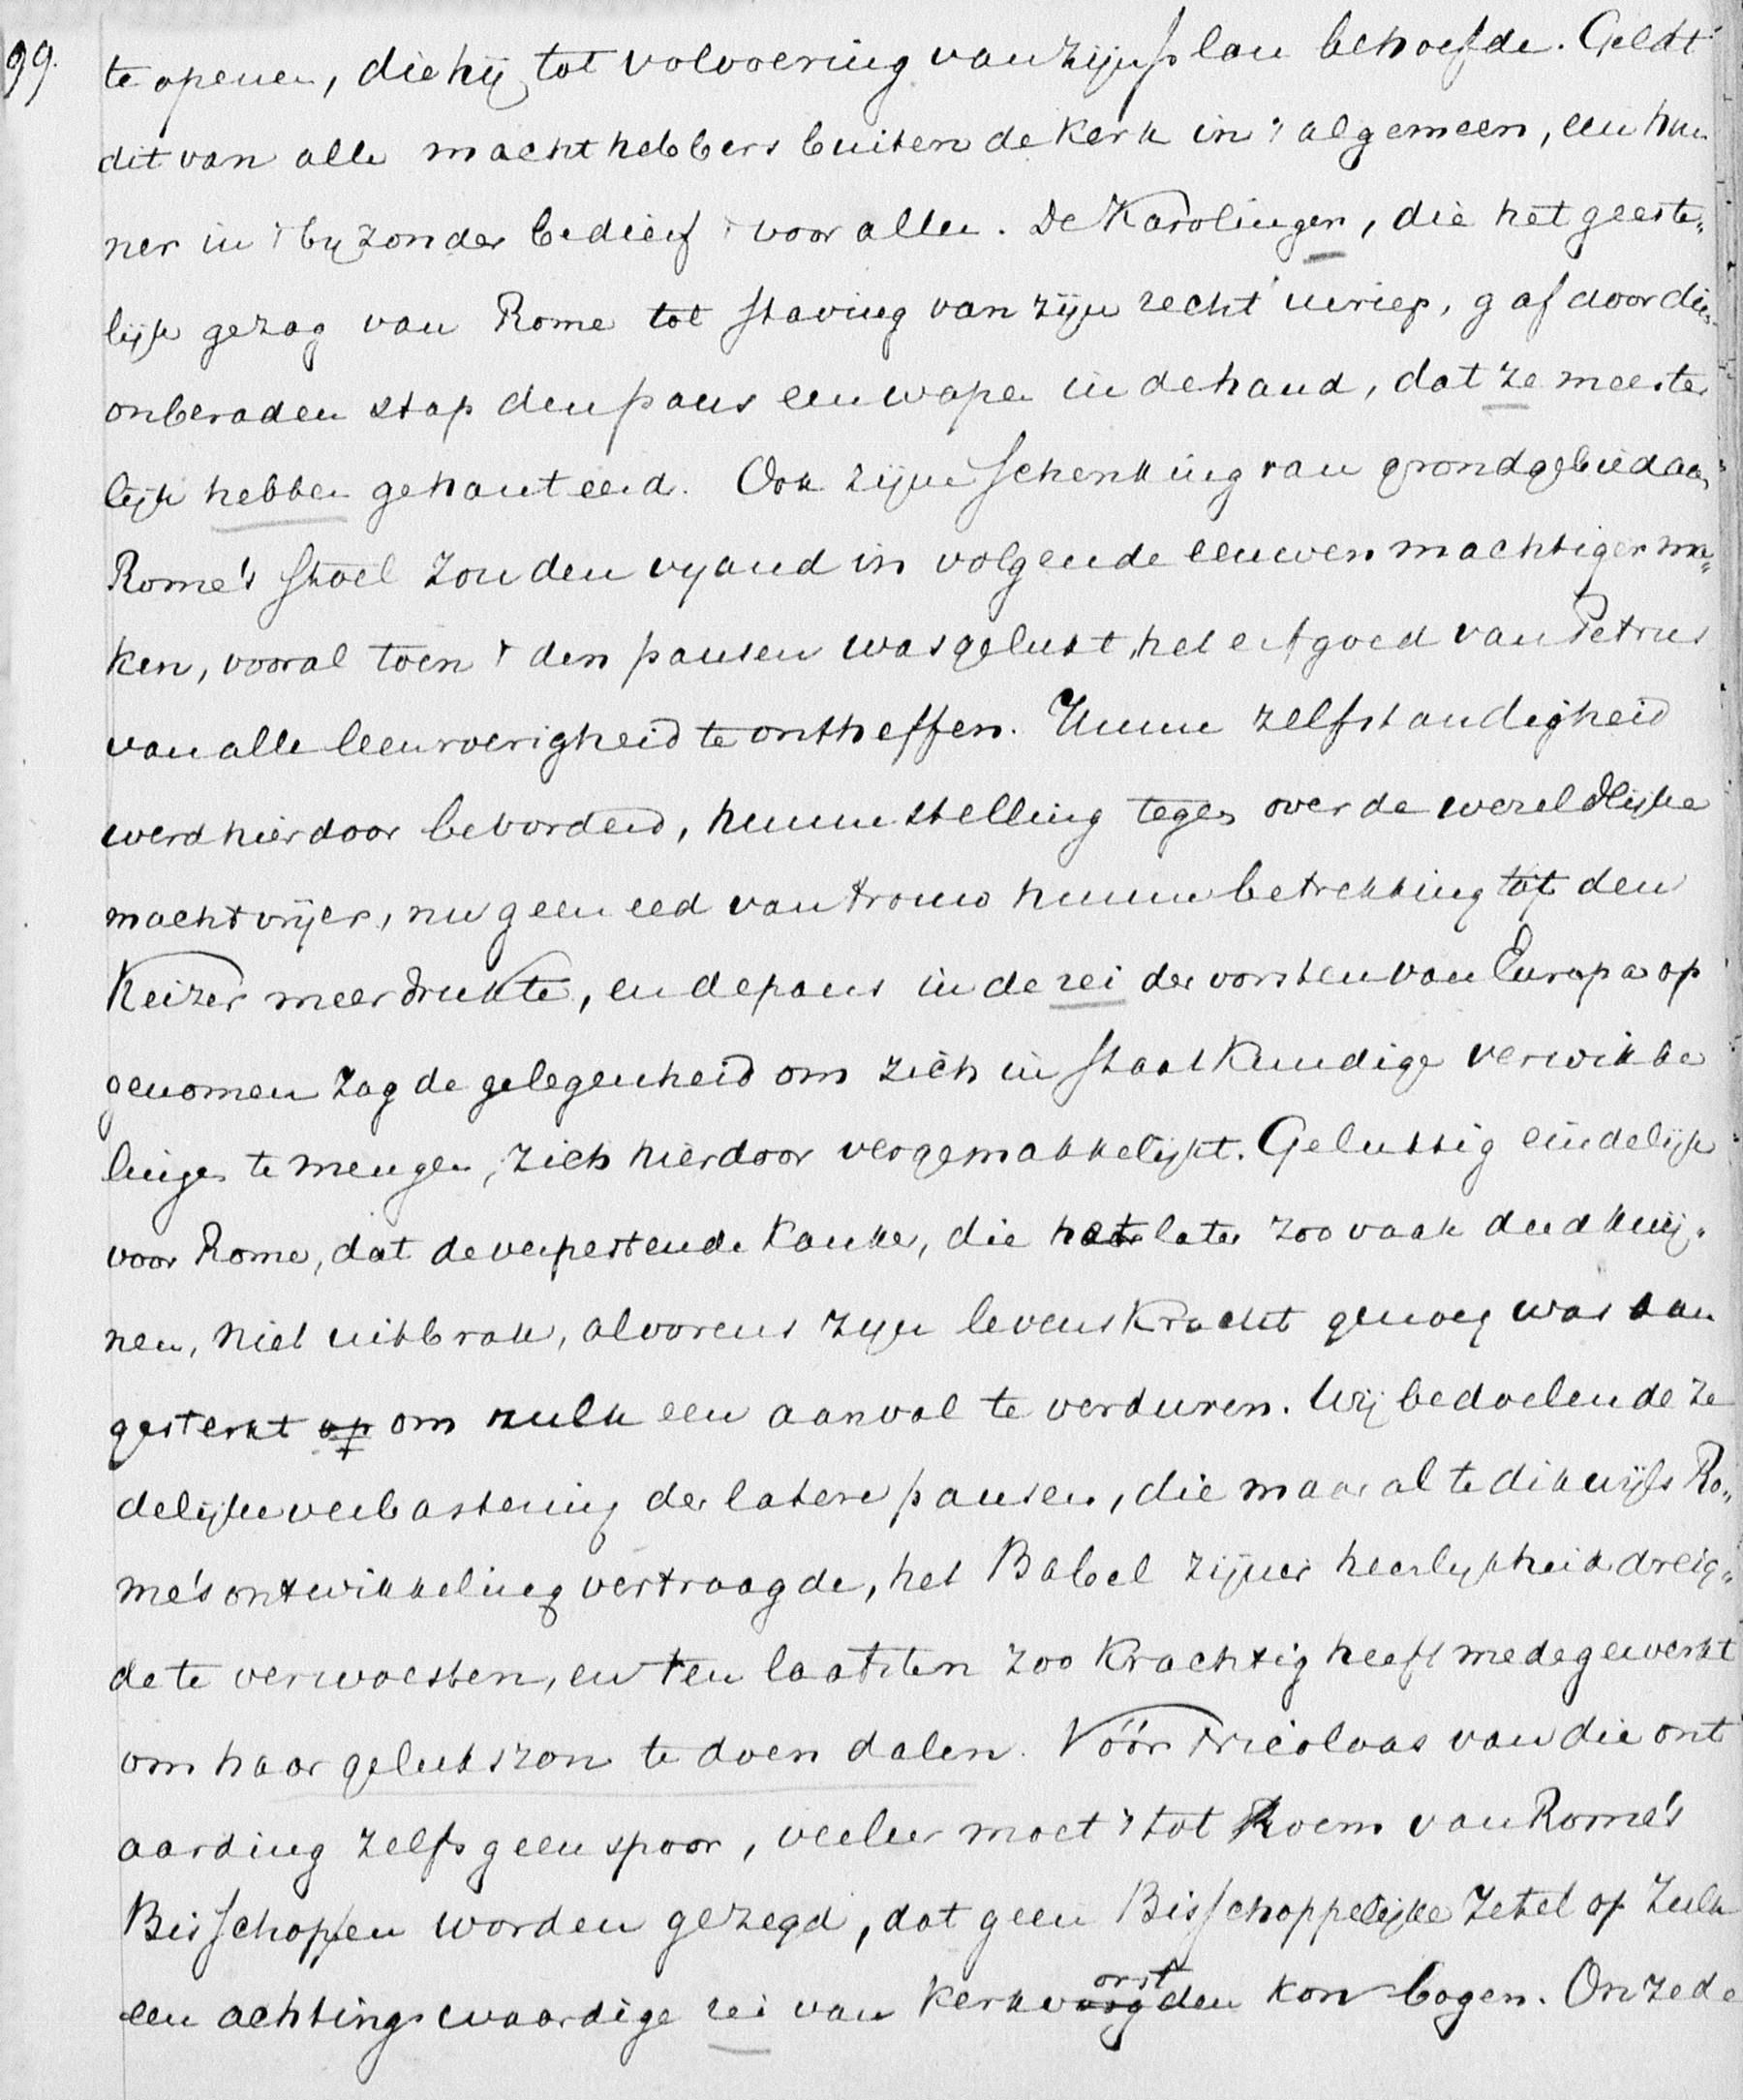 99.
te openen, die hij tot volvoering van zijn plan behoefde. Geldt
dit van alle machthebbers buiten de Kerk in 't algemeen, een hun
ner in 't byzonder bedierf 't voor allen. De Karolinger, die het geeste„
lijk gezag van Rome tot staving van zijn recht inriep, gaf door dies
onberaden stap den paus een wapen in de hand, dat ze meester
lijk hebben gehanteerd. Ook zijne schenking van grondgebied aan
Rome's stoel zou den vyand in volgende eeuwen machtiger ma„
ken, vooral toen 't den pausen was gelukt, het erfgoed van Petrus
van alle leenroerigheid te ontheffen. Hunne zelfstandigheid
werd hierdoor bevorderd, hunne stelling tegen over de wereldlijke
macht vrijer, nu geen eed van trouw hunne betrekking tot den
Keizer meer drukte, en de paus in de rei der vorsten van Europa op
genomen zag de gelegenheid om zich in staatkundige verwikke
lingen te mengen, zich hierdoor vergemakkelijkt. Gelukkig eindelijk
voor Rome, dat de verpestende kanker, die het later zoo vaak deed kwij„
nen, niet uitbrak, alvorens zijn levenskracht genoeg was aan
gesterkt op om zulk een aanval te verduren. Wij bedoelen de ze
delijke verbastering der latere pausen, die maar al te dikwijls Ro„
me's ontwikkeling vertraagde, het Babel zijner heerlykheid dreig„
de te verwoesten, en ten laatsten zoo krachtig heeft medegewerkt
om haar gelukszon te doen dalen. Vóór Nicolaas van die ont
aarding zelfs geen spoor, veeleer moet 't tot Roem van Rome's
Bisschoppen worden gezegd, dat geen Bisschoppelijke Zetel op zulk
een achtingswaardige rei van Kerkvoogden orst kon bogen. Onze de